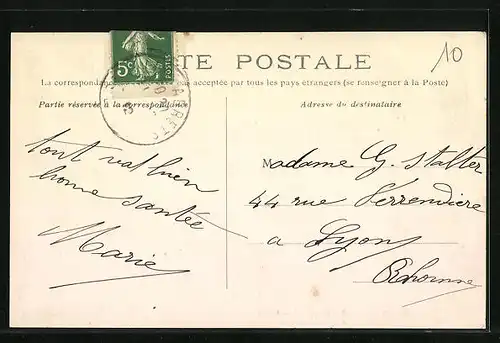 10
CARTE POSTALE
5c
POSTES
La correspondance pas acceptée par tous les pays étrangers (se renseigner à la Poste)
Partie réservée à la correspondance
Adresse du destinataire
tout vat bien
bonne santée
Marie
Madame G. Stalter
44 rue Ferrendiere
a Lyon
Rhonne